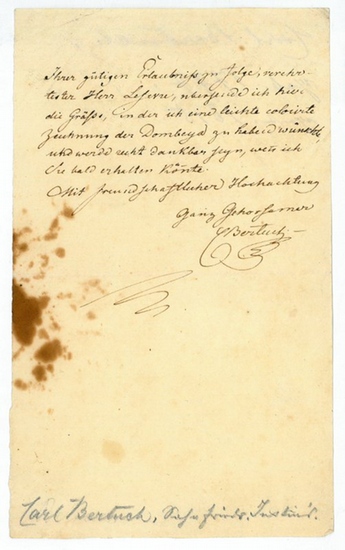 Ihrer gütigen Erlaubniß zu folge, verehr-
tester Herr übersende ich hier
die Größe, in der ich eine leichte colorirte
Zeichnung der Dombeya zu haben wünschte,
und werde recht dankbar seyn, wenn ich
Sie bald erhalten könte
Mit freundschaftlicher Hochachtung
Ganz Gehorsamer
CBertuch
Carl Bertuch, Sohn Friedr. Justin's.